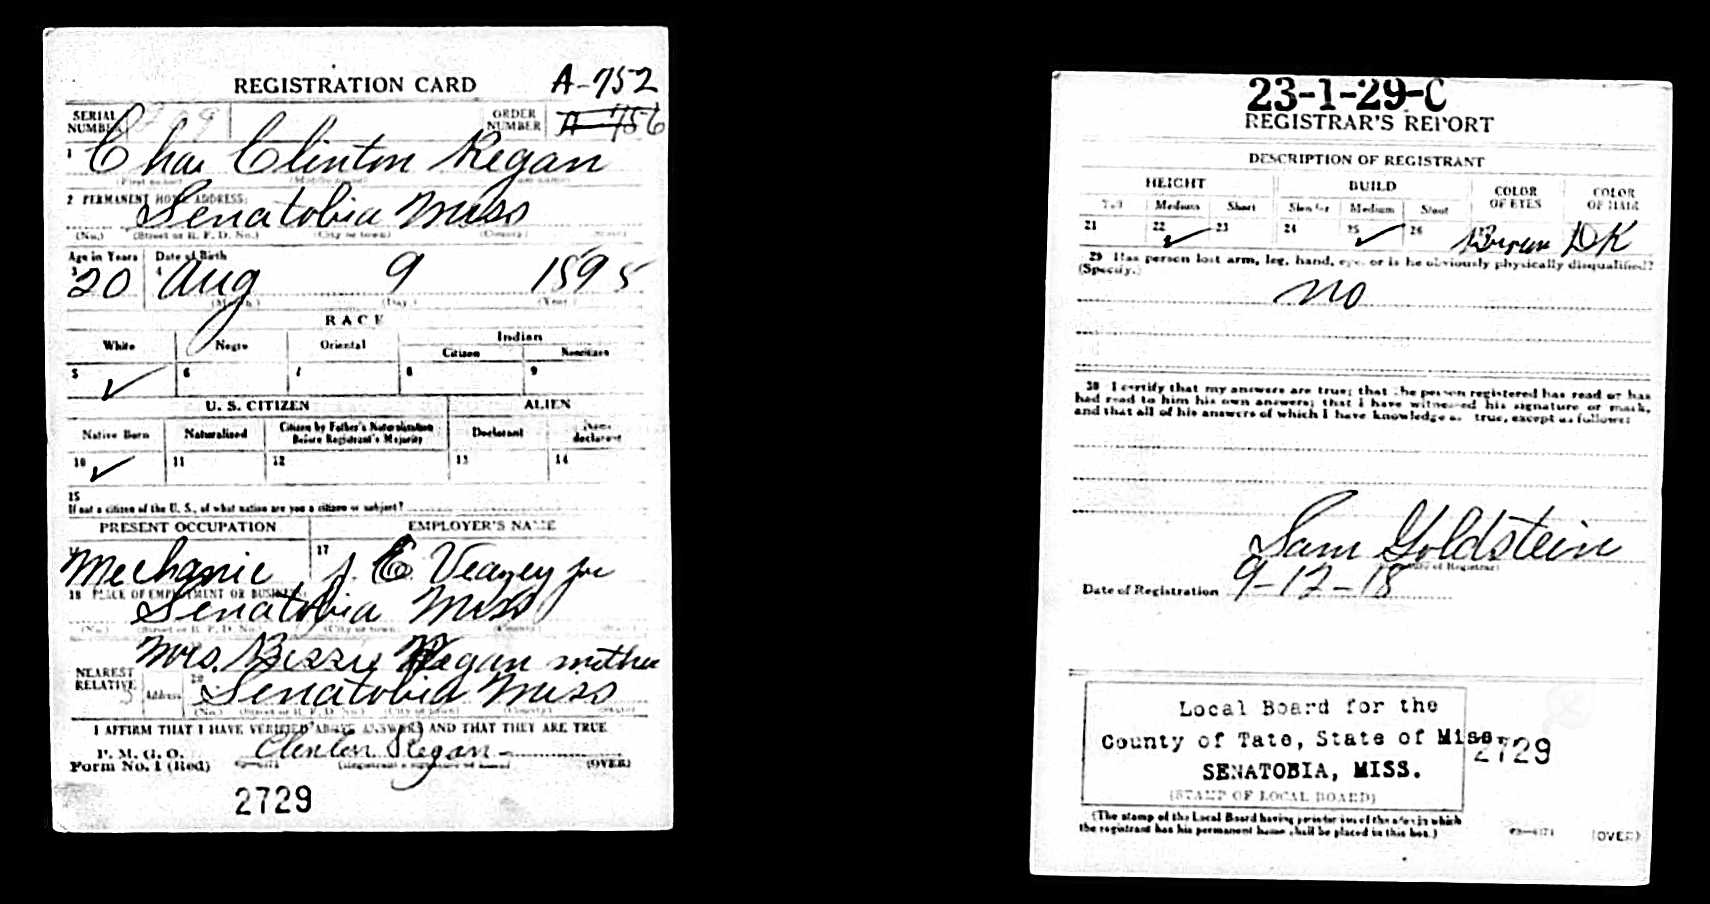 REGISTRATION CARD
A-752
SERIAL NUMBER
ORDER NUMBER
A-756
1 Chas Clinton Regan
(First name) (Middle name) (Last name)
2 PERMANENT HOME ADDRESS:
Senatobia Miss
(No.) (Street or R. F. D. No.) (City or town) (County) (State)
Age in Years Date of Birth
3 20 4 Aug 9 1895
(Month.) (Day.) (Year.)
RACE
White Negro Oriental Indian
Citizen Noncitizen
5 ✓ 6 7 8 9
U. S. CITIZEN ALIEN
Native Born Naturalized Citizen by Father's Naturalization Before Registrant's Majority Declarant Non-declarant
10 ✓ 11 12 13 14
15
If not a citizen of the U. S., of what nation are you a citizen or subject?
PRESENT OCCUPATION EMPLOYER'S NAME
Mechanic 17 J. E. Veazey Jr
18 PLACE OF EMPLOYMENT OR BUSINESS:
Senatobia Miss
(No.) (Street or R. F. D. No.) (City or town) (County)
Mrs. Bessie Regan mother
NEAREST RELATIVE
Address 20 Senatobia Miss
(No.) (Street or R. F. D. No.) (City or town) (County) (State)
I AFFIRM THAT I HAVE VERIFIED ABOVE ANSWERS AND THAT THEY ARE TRUE
P. M. G. O.
Form No. 1 (Red) Clinton Regan
(Registrant's signature or mark) (OVER)
2729
23-1-29-C
REGISTRAR'S REPORT
DESCRIPTION OF REGISTRANT
HEIGHT BUILD COLOR OF EYES COLOR OF HAIR
Tall Medium Short Slender Medium Stout
21 22 ✓ 23 24 25 ✓ 26 Brown DK
29 Has person lost arm, leg, hand, eye, or is he obviously physically disqualified?
(Specify.)
no
30 I certify that my answers are true; that the person registered has read or has
had read to him his own answers; that I have witnessed his signature or mark,
and that all of his answers of which I have knowledge are true, except as follows:
Sam Goldstein
(Signature of Registrar)
Date of Registration 9-12-18
Local Board for the
County of Tate, State of Miss.
SENATOBIA, MISS.
2729
(STAMP OF LOCAL BOARD)
(The stamp of the Local Board having jurisdiction of the area in which
the registrant has his permanent home shall be placed in this box.)
(OVER)